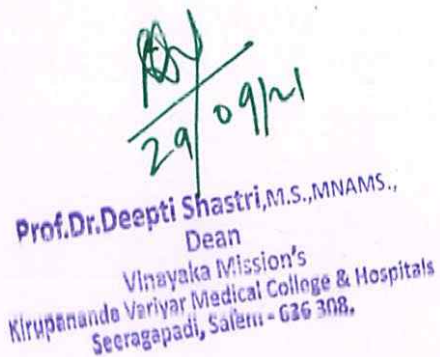 29/09/21
Prof.Dr.Deepti Shastri,M.S.,MNAMS.,
Dean
Vinayaka Mission's
Kirupananda Variyar Medical College & Hospitals
Seeragapadi, Salem - 636 308.